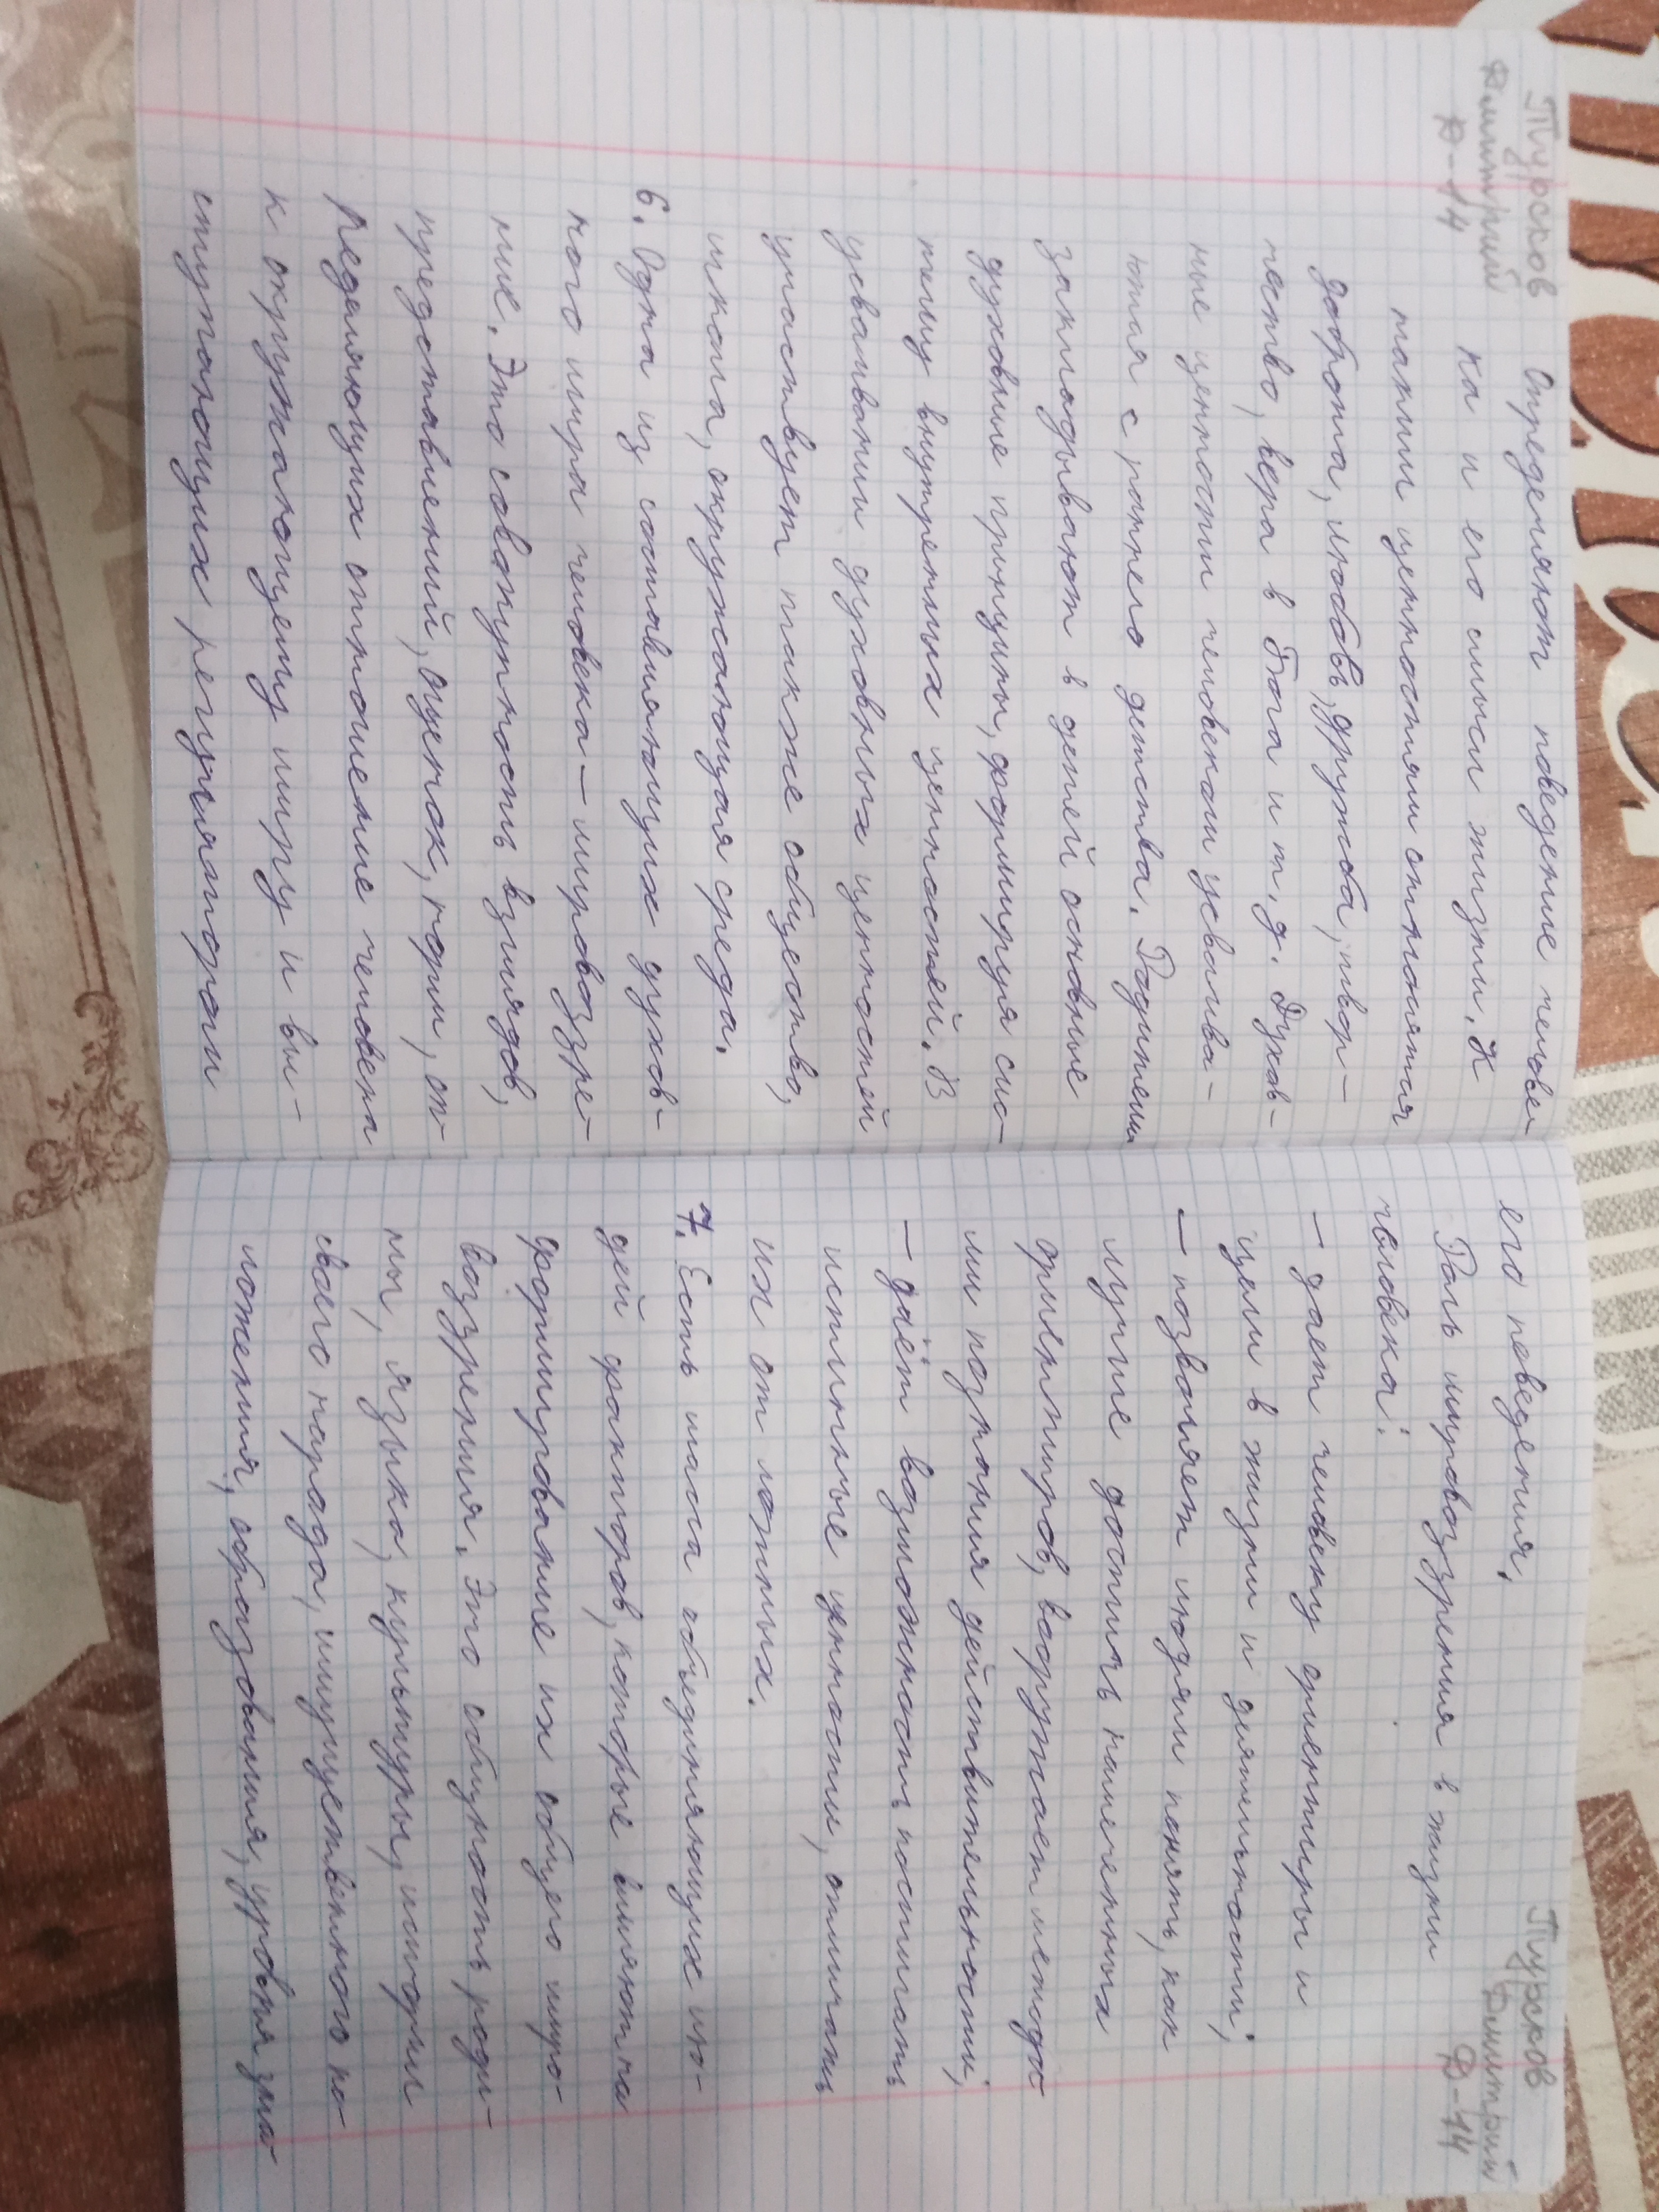 Пурсков
Дмитрий
Ф-14
Определяют поведение челове-
ка и его смысл жизни. К
таким ценностям относятся
доброта, любовь, дружба, твор-
чество, вера в Бога и т.д. Духов-
ные ценности человеком усваива-
ются с раннего детства. Родители
закладывают в детей основные
духовные принципы, формируя сис-
тему внутренних ценностей. В
усваивании духовных ценностей
участвует также общество,
школа, окружающая среда.
6. Одна из составляющих духов-
ного мира человека — мировоззре-
ние. Это совокупность взглядов,
представлений, оценок, норм, оп-
ределяющих отношение человека
к окружающему миру и вы-
ступающих регулятором
его поведения.
Роль мировоззрения в жизни
человека:
— дает человеку ориентиры и
цели в жизни и деятельности;
— позволяет людям понять, как
лучше достичь намеченных
ориентиров, воружает метода
ми познания действительности;
— даёт возможность постигать
истинные ценности, отличать
их от ложных.
7. Есть масса объединяющих лю-
дей факторов, которые влияют на
формирование их общего миро-
воззрения. Это общность роди-
ны, языка, культуры, истории
своего народа, имущественного по-
ложения, образования, уровня зна-
Пурсков
Дмитрий
Ф-14